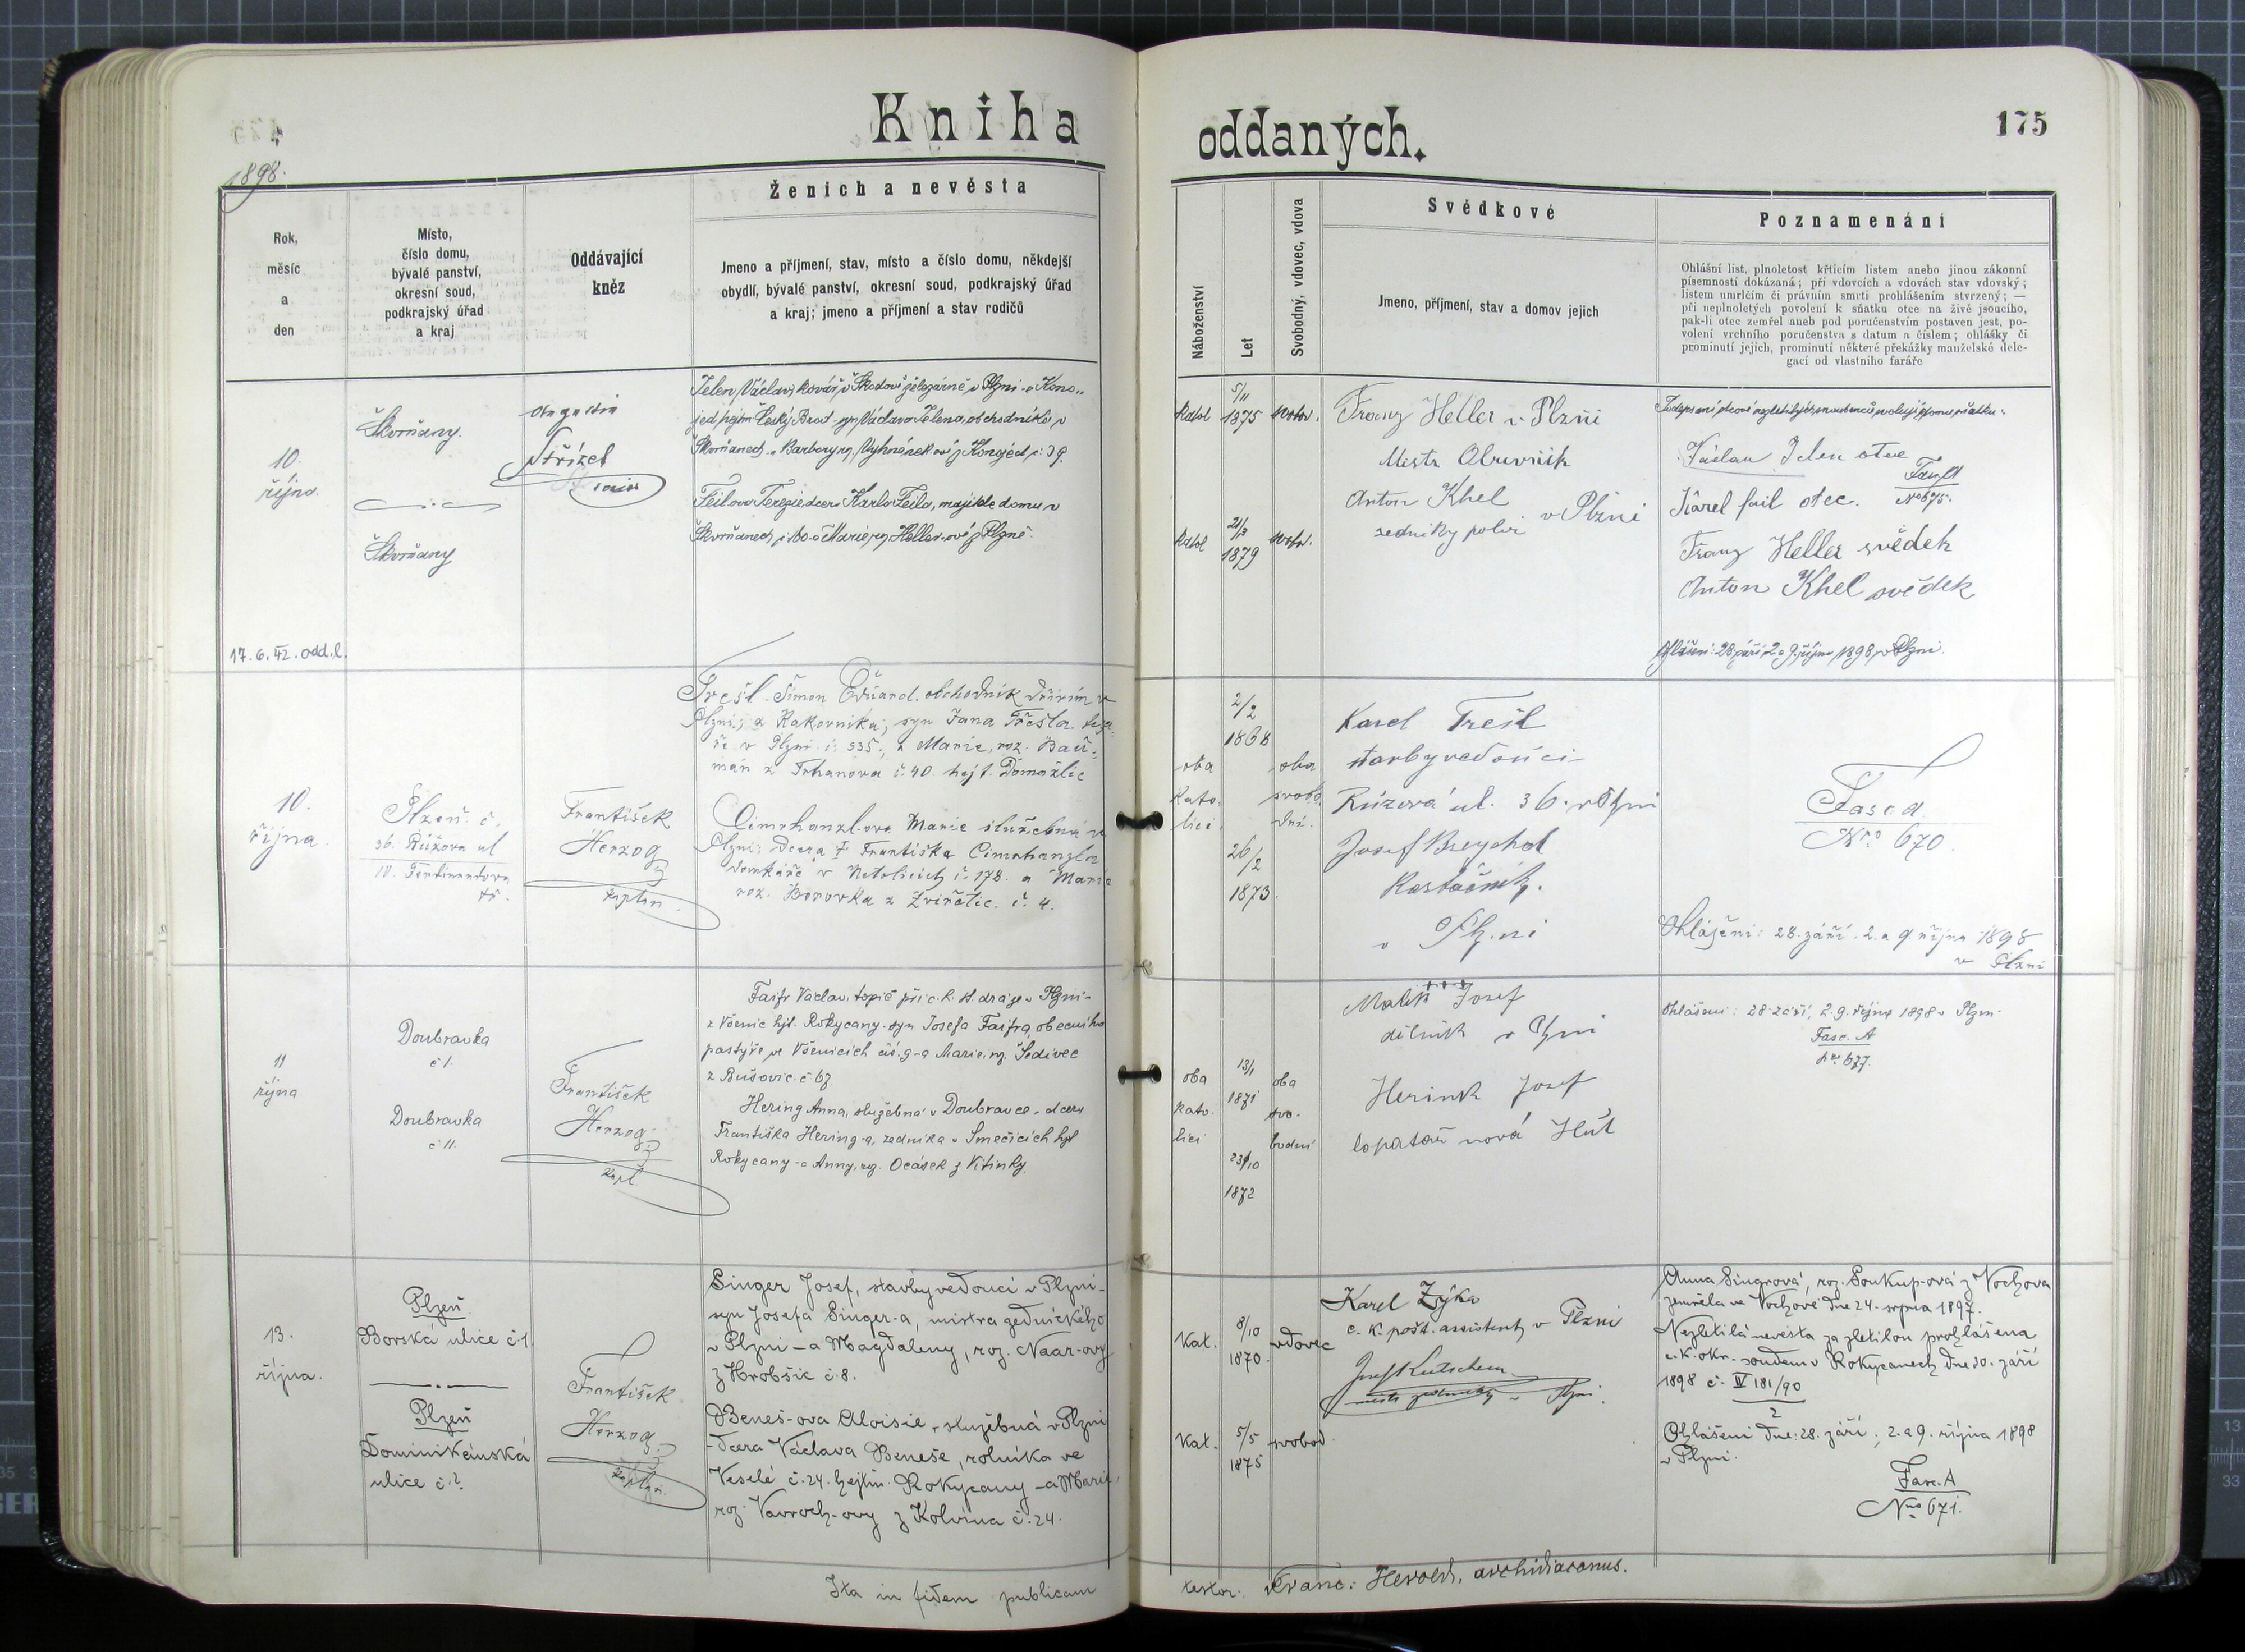 Kniha
oddaných.
175
1898.
Rok,
měsíc
a
den
Místo,
číslo domu,
bývalé panství,
okresní soud,
podkrajský úřad
a kraj
Oddávající
kněz
Ženich a nevěsta
Jmeno a příjmení, stav, místo a číslo domu, někdejší
obydlí, bývalé panství, okresní soud, podkrajský úřad
a kraj; jmeno a příjmení a stav rodičů
Náboženství
Let
Svobodný, vdovec, vdova
Svědkové
Jmeno, příjmení, stav a domov jejich
Poznamenání
Ohlášní list, plnoletost křticím listem anebo jinou zákonní
písemností dokázaná; při vdovcích a vdovách stav vdovský;
listem umrlčím či právním smrti prohlášením stvrzený; —
při neplnoletých povolení k sňatku otce na živě jsoucího,
pak-li otec zemřel aneb pod poručenstvím postaven jest, po-
volení vrchního poručenstva s datum a číslem; ohlášky či
prominutí jejich, prominutí některé překážky manželské dele-
gací od vlastního faráře
10.
října.
17.6.42. odd.l.
Škvrňany.
Škvrňany
Augustin
Střízek
Jelen Václav, kovář v Škodově železárně v Plzni - z Kono-
jed hejtm. Český Brod - syn Václava Jelena, obchodníka v
Škvrňanech a Barbory, roz. Vyhnánkové z Konojed č. 39.
Feilova Terezie, dcera Karla Feila, majitele domu v
Škvrňanech č. 160 a Marie, roz. Heller-ové z Plzně.
katol
5/11
1875
svob.
katol
21/3
1879
svob.
Franz Heller v Plzni
Mistr Obuvník
Anton Khel
zednický polír v Plzni
Podepsaní otcové nezletilých snoubenců svolují k tomu sňatku:
Václav Jelen otec
Karel Feil otec.
Fasc. A
No 675.
Franz Heller svědek
Anton Khel svědek
Ohlášení: 28. září, 2. a 9. října 1898 v Plzni.
10.
října.
Plzeň č.
36. Růžova ul
10. Ferdinandova
tř.
František
Herzog
kaplan.
Trešl Šimon Eduard. obchodník dřívím v
Plzni; z Rakovníka, syn Jana Třešla
v Plzni č. 335., a Marie, roz. Bau-
man z Trhanova č. 40. hejt. Domažlic
Cimrhanzl-ova Marie služebná v
Plzni; dcera † Františka Cimrhanzla
domkáře v Netolicích č. 178. a Marie
roz. Borovka z Zviřetic. č. 4.
oba
kato-
líci
2/2
1868
26/2
1873.
oba
svobo
dní.
Karel Trešl
stavbyvedoucí
Růzová ul. 36. v Plzni
Josef
v Plzni
Fasc. A.
Nro 670.
Ohlášení: 28. září. 2. a 9 října 1898
v Plzni
11
října
Doubravka
č 1.
Doubravka
č 11.
František
Herzog
kapl.
Faifr Václav, topič při c. k. st. dráze v Plzni -
z Všenic hjt. Rokycany - syn Josefa Faifra, obecního
pastýře ve Všenicích čís. 9 - a Marie, roz. Šedivec
z Bušovic. č 67.
Hering Anna, služebná v Doubravce - dcera
Františka Hering-a, zedníka v Smečicích hjt
Rokycany - a Anny, roz. Ocásek z Vitinky.
oba
kato-
líci
13/1
1871
23/10
1872
oba
svo-
bodní
+++
Josef
dělník v Plzni
Herink Josef
lopatář nová Huť
Ohlášení: 28. září, 2. 9. října 1898 v Plzni.
Fasc. A
Nro. 677.
13.
října.
Plzeň.
Borská ulice č. 1
Plzeň
Dominikánská
ulice č. 2.
František
Herzog
kaplan.
Singer Josef, stavbyvedoucí v Plzni -
syn Josefa Singer-a, mistra zednického
v Plzni - a Magdaleny, roz. Naar-ovy
z Hrobšic č. 8.
Beneš-ova Aloisie, služebná v Plzni
- dcera Václava Beneše, rolníka ve
Veselé č. 24. hejtm. Rokycany - a Marie,
roz. Vavroch-ovy z Kolvína č. 24.
Kat.
8/10
1870.
vdovec
Kat.
5/5
1875
svobod.
Karel Zýka
c. k. pošt. assistent v Plzni
Josef Kutschera
mistr zednický v Plzni.
Anna Singrová, roz. Soukup-ová z Vochova
zemřela ve Vochově dne 24. srpna 1897.
Nezletilá nevěsta za zletilou prohlášena
c. k. okr. soudem v Rokycanech dne 30. září
1898 č. IV 181/90
2
Ohlášení dne: 28. září, 2. a 9. října 1898
v Plzni.
Fasc. A
Nro 671.
Ita in fidem publicam
testor: Franc: Herold, archidiaconus.